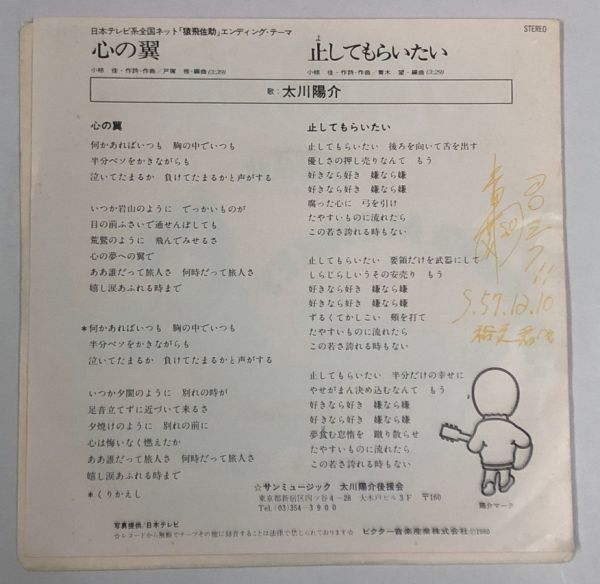 日本テレビ系全国ネット「猿飛佐助」エンディング・テーマ
STEREO
心の翼
小椋 佳・作詩・作曲／戸塚 修・編曲(3:39)
止してもらいたい
よ
小椋 佳・作詩・作曲／青木 望・編曲(3:29)
歌：太川陽介
心の翼
何かあればいつも 胸の中でいつも
半分ベソをかきながらも
泣いてたまるか 負けてたまるかと声がする
いつか岩山のように でっかいものが
目の前ふさいで通せんぼしても
荒鷲のように 飛んでみせるさ
心の夢への翼で
ああ誰だって旅人さ 何時だって旅人さ
嬉し涙あふれる時まで
*何かあればいつも 胸の中でいつも
半分ベソをかきながらも
泣いてたまるか 負けてたまるかと声がする
いつか夕闇のように 別れの時が
足音立てずに近づいて来るさ
夕焼けのように 別れの前に
心は悔いなく燃えたか
ああ誰だって旅人さ 何時だって旅人さ
嬉し涙あふれる時まで
*くりかえし
止してもらいたい
止してもらいたい 後ろを向いて舌を出す
優しさの押し売りなんて もう
好きなら好き 嫌なら嫌
好きなら好き 嫌なら嫌
腐った心に 弓を引け
たやすいものに流れたら
この若さ誇れる時もない
止してもらいたい 要領だけを武器にして
しらじらしいうその安売り もう
好きなら好き 嫌なら嫌
好きなら好き 嫌なら嫌
ずるくてかしこい 頬を打て
たやすいものに流れたら
この若さ誇れる時もない
止してもらいたい 半分だけの幸せに
やせがまん決め込むなんて もう
好きなら好き 嫌なら嫌
好きなら好き 嫌なら嫌
夢食む怠惰を 蹴り散らせ
たやすいものに流れたら
この若さ誇れる時もない
S.57.12.10
陽介マーク
☆サンミュージック 太川陽介後援会
東京都新宿区四ッ谷4－28 大木戸ビル3F 〒160
Tel.(03)354－3900
写真提供／日本テレビ
☆レコードから無断でテープその他に録音することは法律で禁じられております☆
ビクター音楽産業株式会社Ⓟ1980